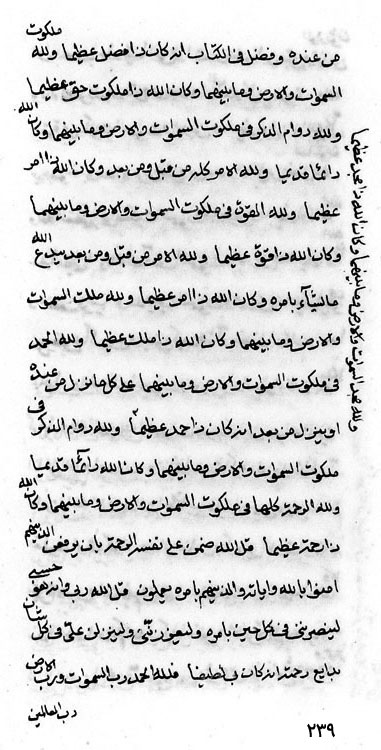 من عنده وفضل فى الكتاب انه كان ذا فضل عظيما ولله ملكوت
السموات والارض وما بينهما وكان الله ذا ملكوت حق عظيما
ولله دوام الذكر فى ملكوت السموات والارض وما بينهما وكان الله
دائما قديما ولله الامر كله من قبل ومن بعد وكان الله ذا امر
عظيما ولله القوة فى ملكوت السموات والارض وما بينهما
وكان الله ذا قوة عظيما ولله الامر من قبل ومن بعد يبدع الله
ما يشآء بامره وكان الله ذا امر عظيما ولله ملك السموات
والارض وما بينهما وكان الله ذا ملك عظيما ولله الحمد
فى ملكوت السموات والارض وما بينهما على كل ما نزل من عنده
او ينزل من بعد انه كان ذا حمد عظيما ولله دوام الذكر فى
ملكوت السموات والارض وما بينهما وكان الله دائما قديما
ولله الرحمة كلها فى ملكوت السموات والارض وما بينهما وكان الله
ذا رحمة عظيما قل الله ضمن على نفسه الرحمة بان يرفعن الذينهم
امنوا بالله واياته والذينهم بامره يعملون قل الله ربى وانه هو حسبى
لينصرننى فى كل حين بامره وليعززننى ولينزلن علىّ فى كل شان
بدايع رحمته انه كان بى لطيفا فلله الحمد رب السموات ورب الارض
رب العالمين
ولله مجد السموات والارض وما بينهما وكان الله ذا مجد عظيما
٢٣٩